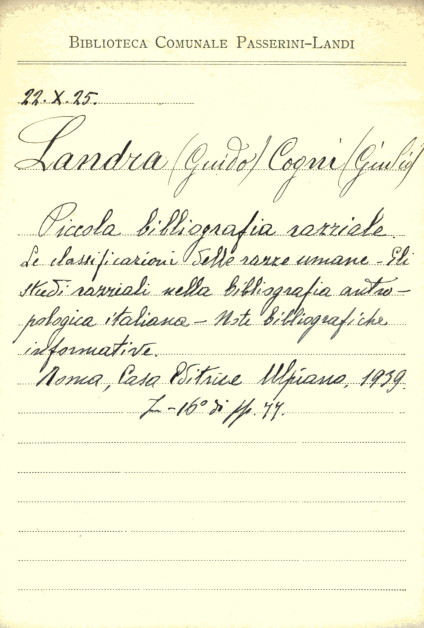 BIBLIOTECA COMUNALE PASSERINI-LANDI
22. X. 25.
Landra (Guido) Cogni (Giulio)
Piccola bibliografia razziale
Le classificazioni delle razze umane - Gli
studi razziali nella bibliografia antro-
pologica italiana - Note bibliografiche
informative.
Roma, Casa Editrice Ulpiano, 1939.
I - 16° di pp. 77.